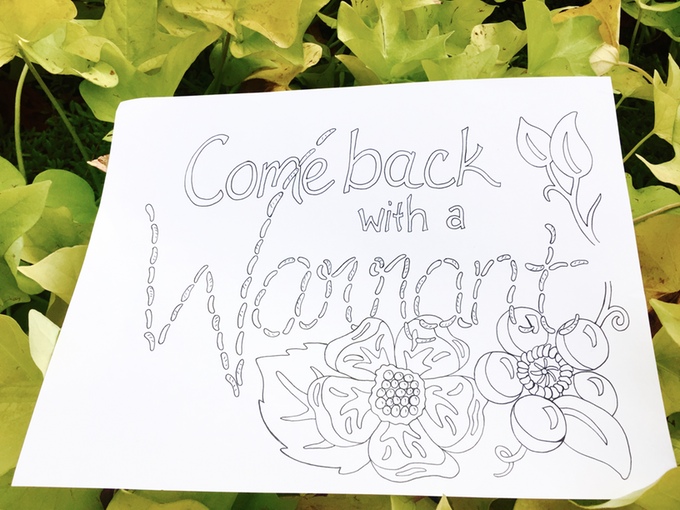 Come back
with a
Warrant